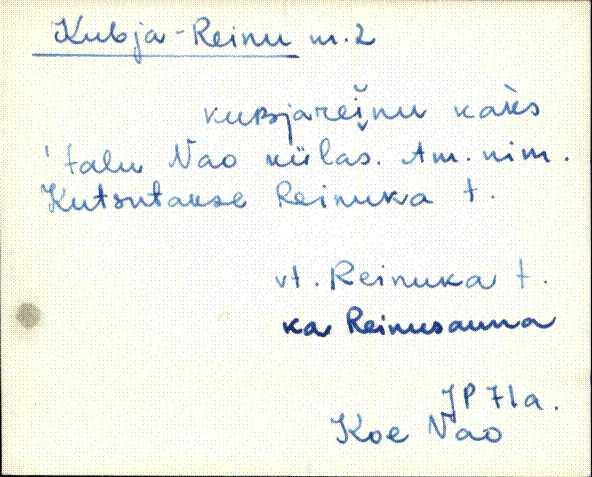 Kubja-Reinu m. 2
kuBjarei̬nu kaks
'talu Nao külas. Am. nim.
Kutsutakse Reinuka t.
vt. Reinuka t.
ka Reinusauna
JP 71a.
Koe Nao